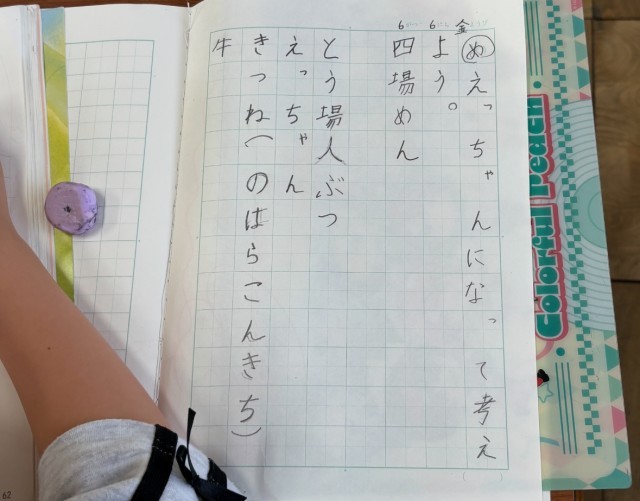 6 6 金
めえっちゃんになって考え
よう。
四場めん
とう場人ぶつ
えっちゃん
きつね(のはらこんきち)
牛
Colorful Peach
62